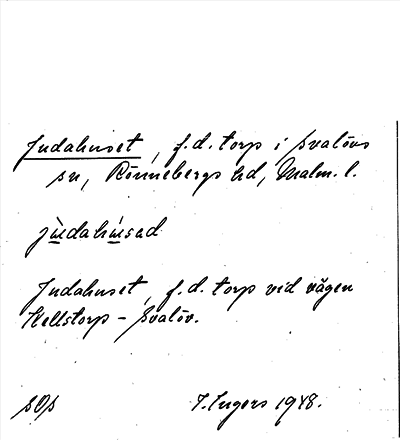 Judahuset, f.d. torp i Svalövs
sn, Rönnebergs hd, Malm. l.
jùdahúsad
Judahuset, f.d. torp vid vägen
Källstorp - Svalöv.
SOS I. Ingers 1948.